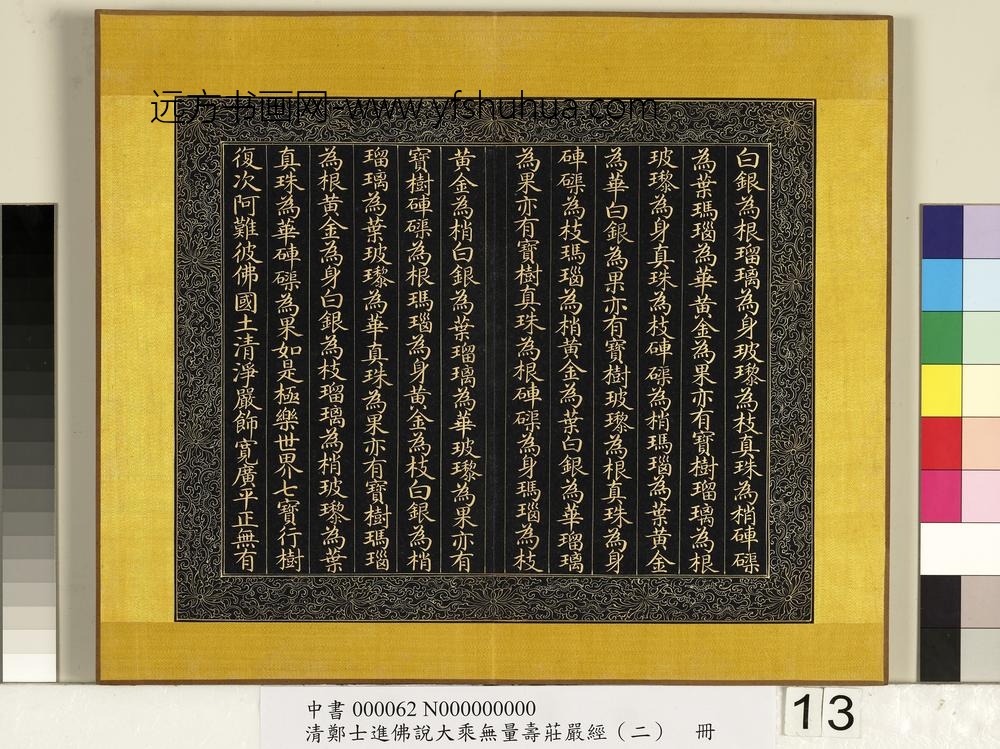 远方书画网-www.yfshuhua.com
白銀為根瑠璃為身玻瓈為枝真珠為梢硨磲
為葉瑪瑙為華黃金為果亦有寶樹瑠璃為根
玻瓈為身真珠為枝硨磲為梢瑪瑙為葉黃金
為華白銀為果亦有寶樹玻瓈為根真珠為身
硨磲為枝瑪瑙為梢黃金為葉白銀為華瑠璃
為果亦有寶樹真珠為根硨磲為身瑪瑙為枝
黃金為梢白銀為葉瑠璃為華玻瓈為果亦有
寶樹硨磲為根瑪瑙為身黃金為枝白銀為梢
瑠璃為葉玻瓈為華真珠為果亦有寶樹瑪瑙
為根黃金為身白銀為枝瑠璃為梢玻瓈為葉
真珠為華硨磲為果如是極樂世界七寶行樹
復次阿難彼佛國土清淨嚴飾寬廣平正無有
中書 000062 N000000000
清鄭士進佛說大乘無量壽莊嚴經（二） 冊
13